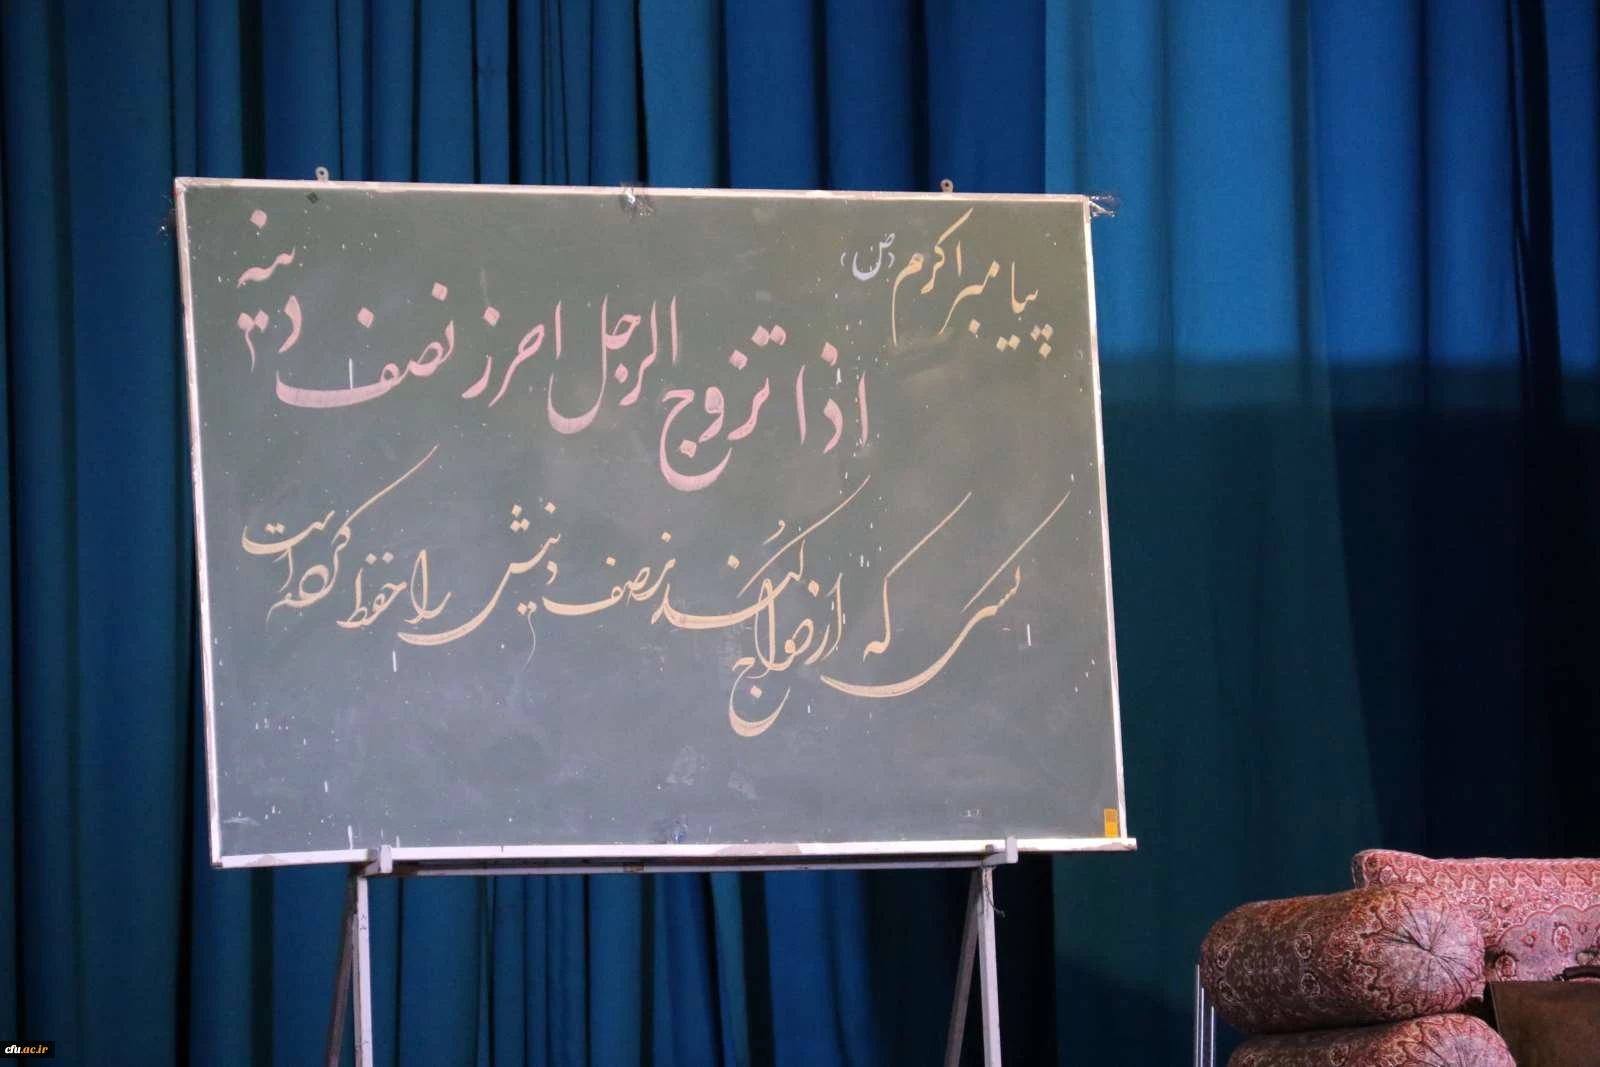 پیامبر اکرم (ص)
اذا تزوج الرجل احرز نصف دینه
کسی که ازدواج کند نصف دینش را حفظ کرده است
cfu.ac.ir